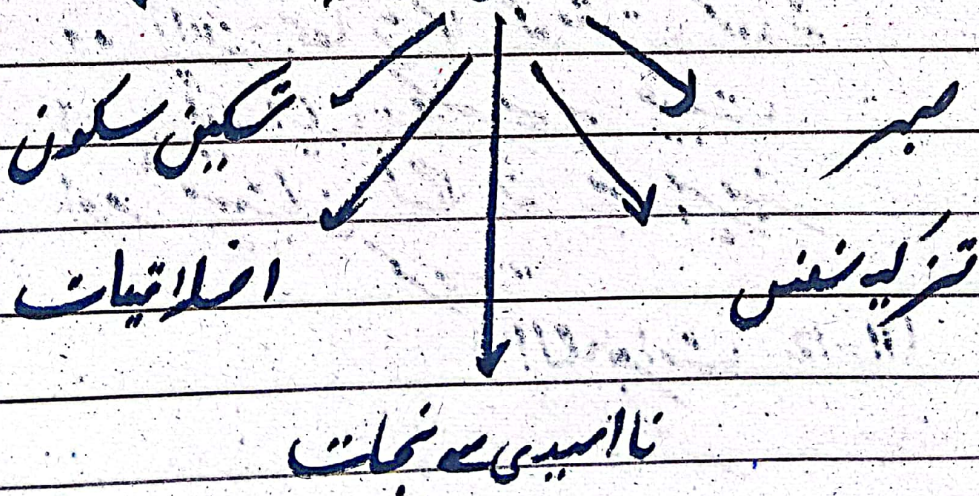 صبر
تسکین سکون
تزکیہ نفس
اخلاقیات
نا امیدی سے نجات